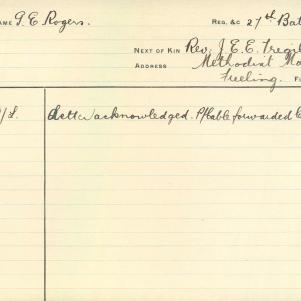 NAME G.E. Rogers.
REG. &C 27th Bat
NEXT OF KIN Rev. J.E.E.
ADDRESS Methodist
Freeling.
Letter acknowledged. P/Cable forwarded